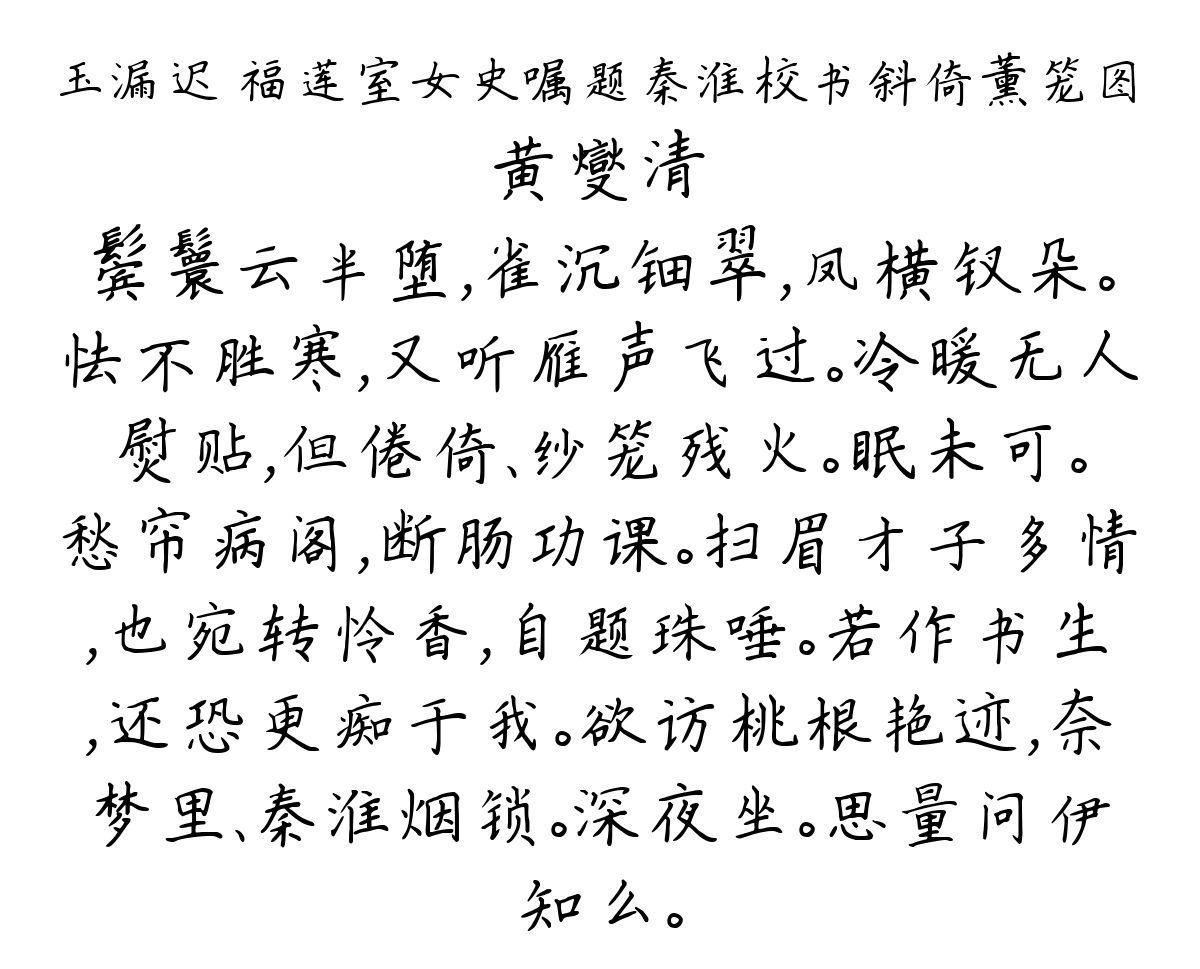 玉漏迟 福莲室女史嘱题秦淮校书斜倚薰笼图
黄燮清
鬓鬟云半堕,雀沉钿翠,凤横钗朵。
怯不胜寒,又听雁声飞过。冷暖无人
熨贴,但倦倚、纱笼残火。眠未可。
愁帘病阁,断肠功课。扫眉才子多情
,也宛转怜香,自题珠唾。若作书生
,还恐更痴于我。欲访桃根艳迹,奈
梦里、秦淮烟锁。深夜坐。思量问伊
知么。